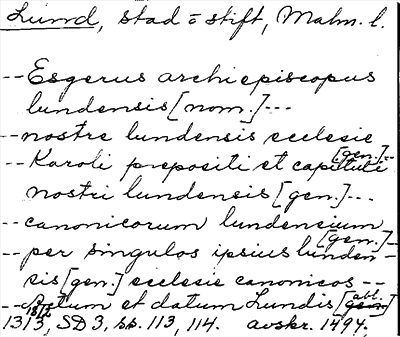 Lund, stad o stift, Malm. l.
-- Esgerus archiepiscopus
lundensis [nom.] ---
-- nostre lundensis ecclesie [gen.] --
-- Karoli prepositi et capituli
nostri lundensis [gen.] ---
-- canonicorum lundensium [gen.] --
-- per singulos ipsius lunden-
sis [gen.] ecclesie canonicos --
-- Actum et datum Lundis [gen.] abl.
18/2
1313, SD 3, ss. 113, 114. avskr. 1494.